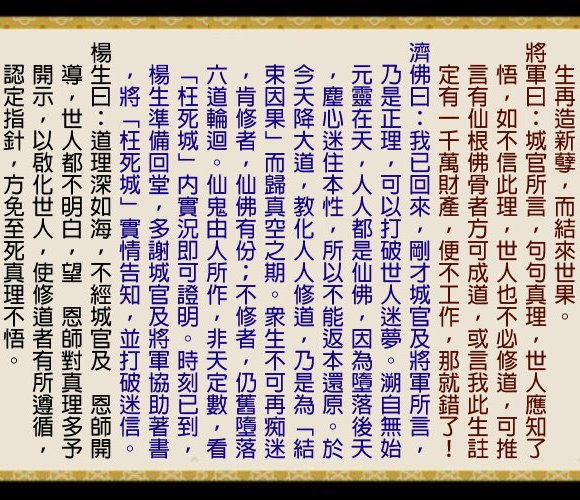 生再造新孽，而結來世果。
將軍曰：城官所言，句句真理，世人應知了
悟，如不信此理，世人也不必修道，可推
言有仙根佛骨者方可成道，或言我此生註
定有一千萬財產，便不工作，那就錯了！
濟佛曰：我已回來，剛才城官及將軍所言，
乃是正理，可以打破世人迷夢。溯自無始
元靈在天，人人都是仙佛，因為墮落後天
，塵心迷住本性，所以不能返本還原。於
今天降大道，教化人人修道，乃是為「結
束因果」而歸真空之期。眾生不可再痴迷
，肯修者，仙佛有份；不修者，仍舊墮落
六道輪迴。仙鬼由人所作，非天定數，看
「枉死城」內實況即可證明。時刻已到，
楊生準備回堂，多謝城官及將軍協助著書
，將「枉死城」實情告知，並打破迷信。
楊生曰：道理深如海，不經城官及　恩師開
導，世人都不明白，望　恩師對真理多予
開示，以啟化世人，使修道者有所遵循，
認定指針，方免至死真理不悟。